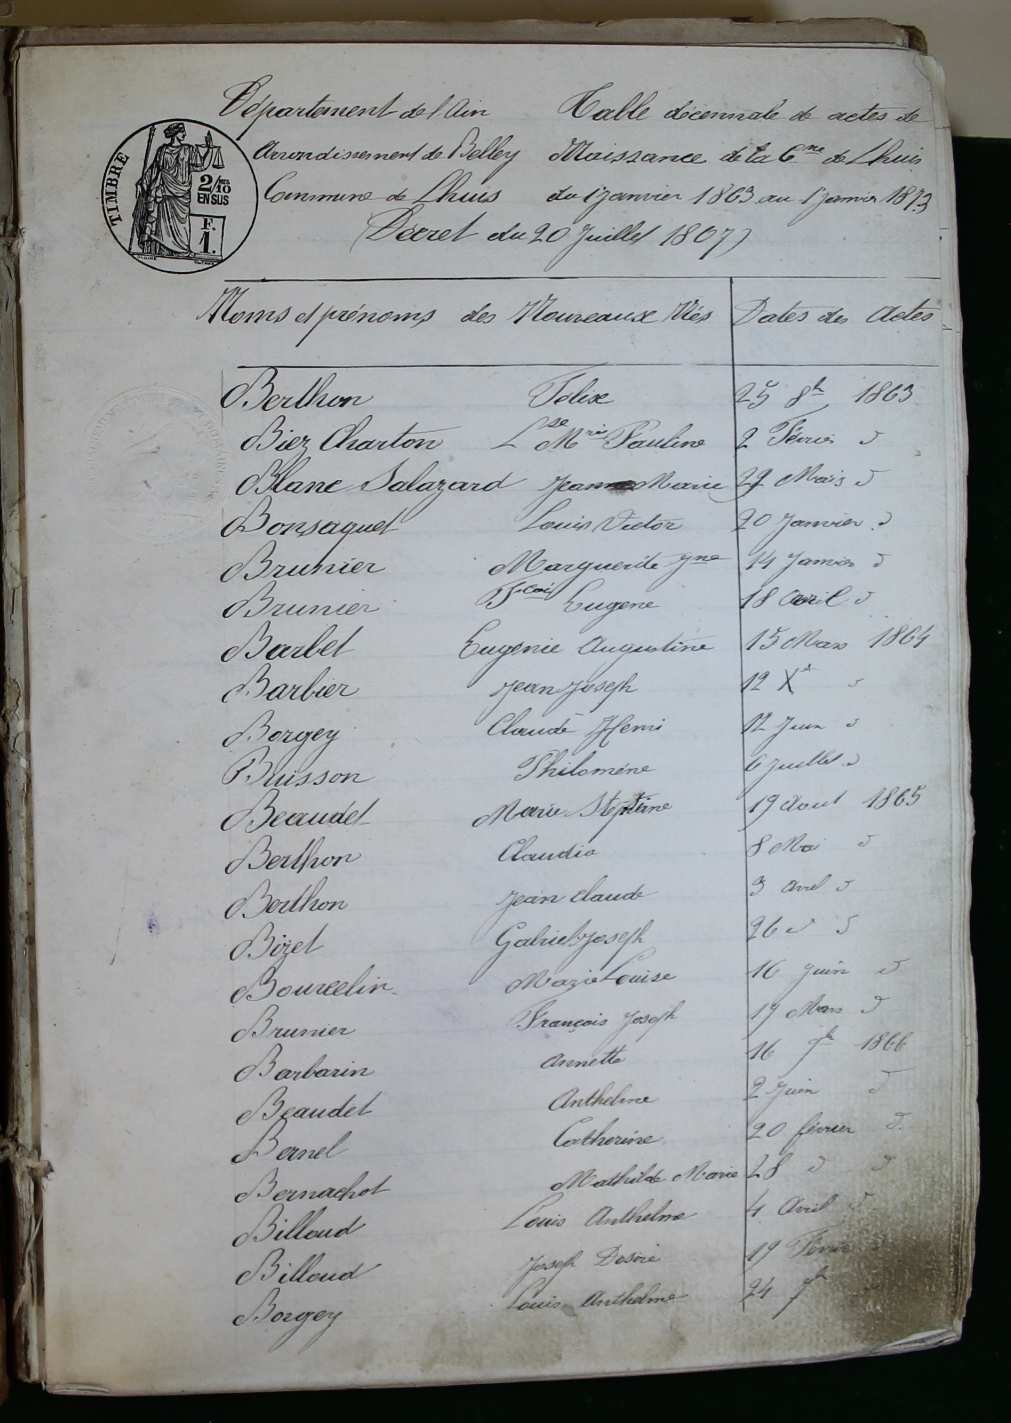 Département de l'Ain Table décennale de actes de
Arrondissement de Belley Naissance de la Cne de Lhuis
Commune de Lhuis du 1 janvier 1863 au 1 janvier 1873
(Décret du 20 Juillet 1807)
TIMBRE
2/10 EN SUS
F. 1.
Noms et prénoms des Nouveaux Nés Dates des Actes
Berthon Felix 25 8b 1863
Biez Charton Lse Mrie Pauline 2 Février d
Blanc Salazard Jeanne Marie 29 Mars d
Bonsaquet Louis Victor 20 Janvier d
Brunier Marguerite Jne 14 Janvier d
Brunier Fcois Eugene 18 Avril d
Barbet Eugénie Augustine 15 Mars 1864
Barbier Jean Joseph 12 Xb d
Borgey Claude Henri 12 Juin d
Buisson Philomène 6 Juillet d
Beaudet Marie Steptine 19 Aout 1865
Berthon Claudia 8 Mai d
Berthon Jean Claude 3 Avril d
Bizet Gabriel Joseph 26 d d
Bourcelin Marie Louise 16 Juin d
Brunier François Joseph 19 Mars d
Barbarin Annette 16 1866
Beaudet Anthelme 2 Juin d
Bernel Catherine 20 février d
Bernachot Mathilde Marie 28 d d
Billoud Louis Anthelme 4 Avril d
Billoud Joseph Désiré 19 Février
Borgey Louis Anthelme 24